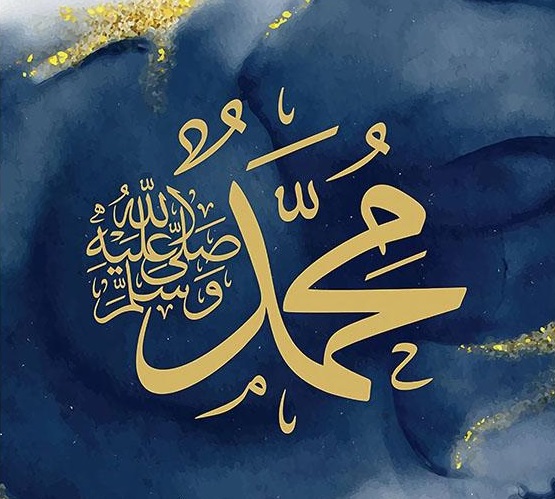 مُحَمَّدٌ
صَلَّى اللّٰه عَلَيْهِ وَسَلَّمَ